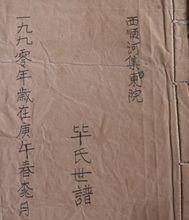 西順河集東院
毕氏世譜
一九九零年歲在庚午春叁月